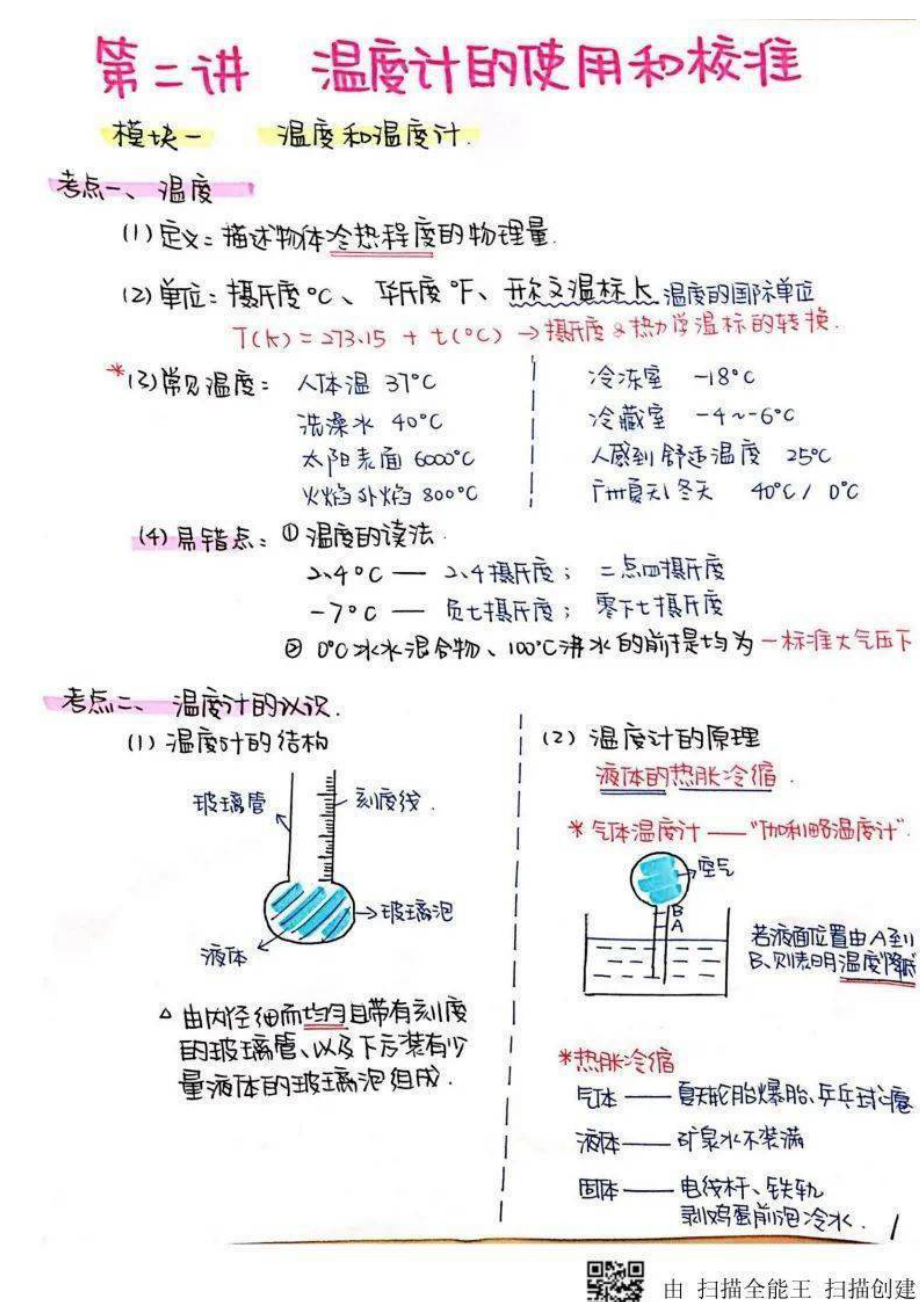 第二讲 温度计的使用和校准
模块一 温度和温度计.
考点一、温度
(1) 定义：描述物体冷热程度的物理量.
(2) 单位：摄氏度℃、华氏度℉、开尔文温标K 温度的国际单位
T(K) = 273.15 + t(℃) → 摄氏度&热力学温标的转换.
*(3) 常见温度： 人体温 37℃
洗澡水 40℃
太阳表面 6000℃
火焰外焰 800℃
冷冻室 -18℃
冷藏室 -4~-6℃
人感到舒适温度 25℃
广州夏天\冬天 40℃/ 0℃
(4) 易错点：① 温度的读法.
2.4℃ — 2.4摄氏度； 二点四摄氏度
-7℃ — 负七摄氏度； 零下七摄氏度
② 0℃冰水混合物、100℃沸水的前提均为一标准大气压下
考点二、温度计的认识.
(1) 温度计的结构
玻璃管
刻度线.
玻璃泡
液体
△ 由内径细而均匀且带有刻度
的玻璃管、以及下方装有少
量液体的玻璃泡组成.
(2) 温度计的原理
液体的热胀冷缩.
* 气体温度计 — “伽利略温度计”.
空气
B
A
若液面位置由A到
B、则表明温度降低
*热胀冷缩
气体 — 夏天轮胎爆胎、乒乓球
液体 — 矿泉水不装满
固体 — 电线杆、铁轨
剥鸡蛋前泡冷水.
1
由 扫描全能王 扫描创建